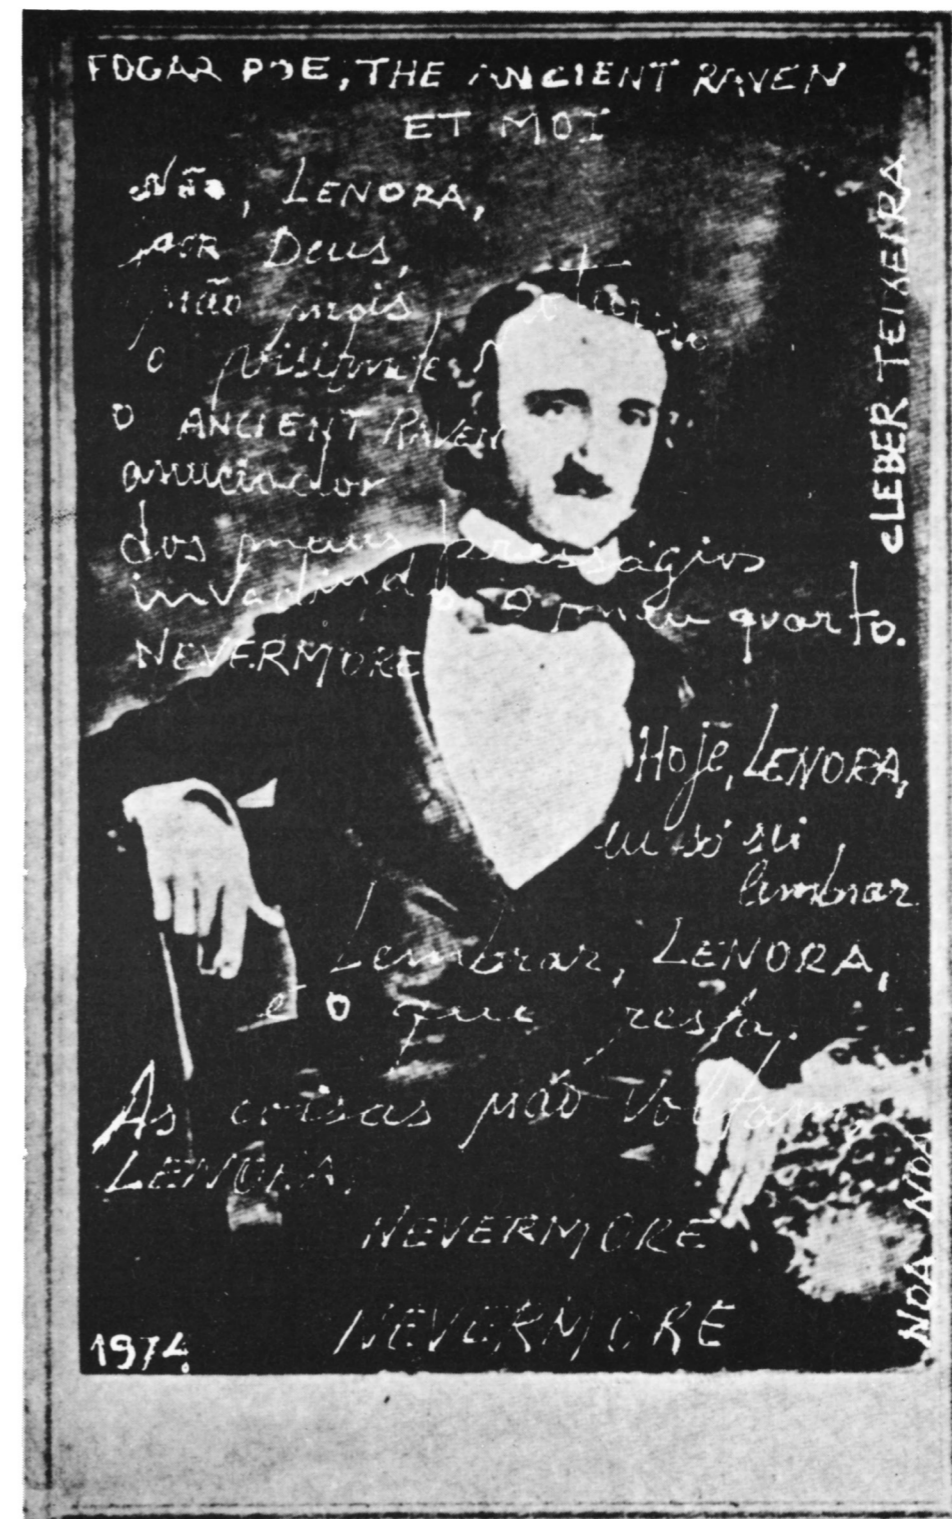 EDGAR POE, THE ANCIENT RAVEN
ET MOI
Não, LENORA,
por Deus,
não mais,
o visitante
O ANCIENT RAVEN
anuciador
dos maus presságios
invadindo o meu quarto.
NEVERMORE
Hoje, LENORA,
eu só sei
lembrar
Lembrar, LENORA,
é o que resta.
As coisas não voltam,
LENORA.
NEVERMORE
NEVERMORE
1974
CLEBER TEIXEIRA
NOA NOA